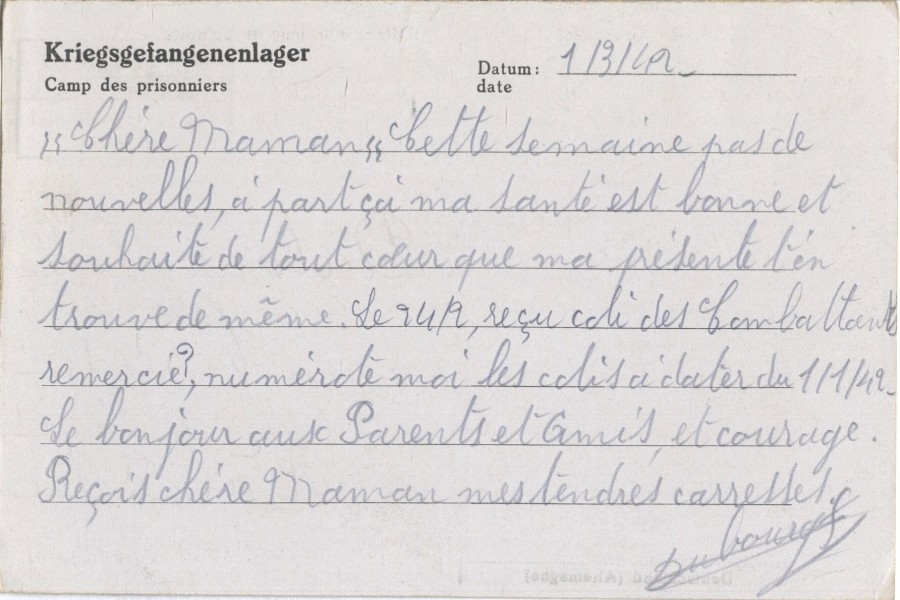 Kriegsgefangenenlager
Camp des prisonniers
Datum: 1/3/42
date
"Chère Maman" Cette semaine pas de
nouvelles, à part çà ma santé est bonne et
souhaite de tout cœur que ma présente t'en
trouve de même. Le 24/2, reçu coli des Combattants
remercie?, numérote moi les colis à dater du 1/1/42
Le bonjour aux Parents et Amis, et courage.
Reçois chère Maman mes tendres carresses.
Dubourg
Deutschland (Allemagne)